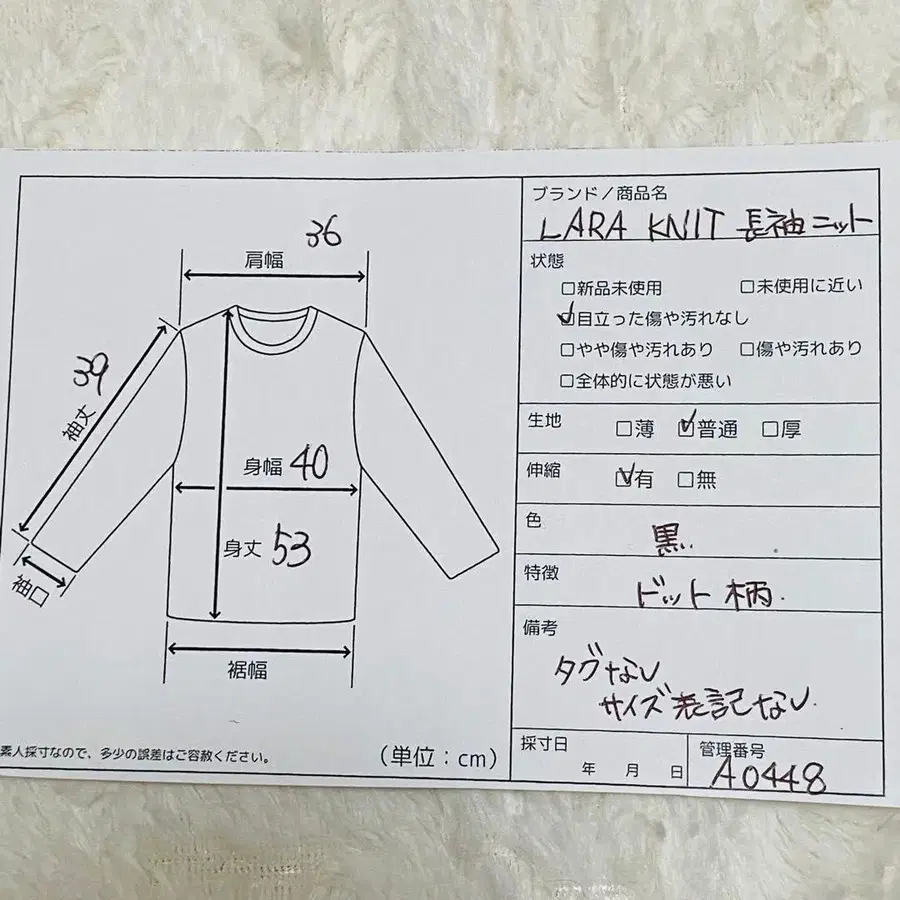 36
肩幅
39
袖丈
身幅 40
身丈 53
袖口
裾幅
素人採寸なので、多少の誤差はご容赦ください。
(単位:cm)
ブランド/商品名
LARA KNIT 長袖ニット
状態
□新品未使用 □未使用に近い
☑目立った傷や汚れなし
□やや傷や汚れあり □傷や汚れあり
□全体的に状態が悪い
生地 □薄 ☑普通 □厚
伸縮 ☑有 □無
色
黒.
特徴
ドット柄.
備考
タグなし
サイズ表記なし.
採寸日
年 月 日
管理番号
A0448